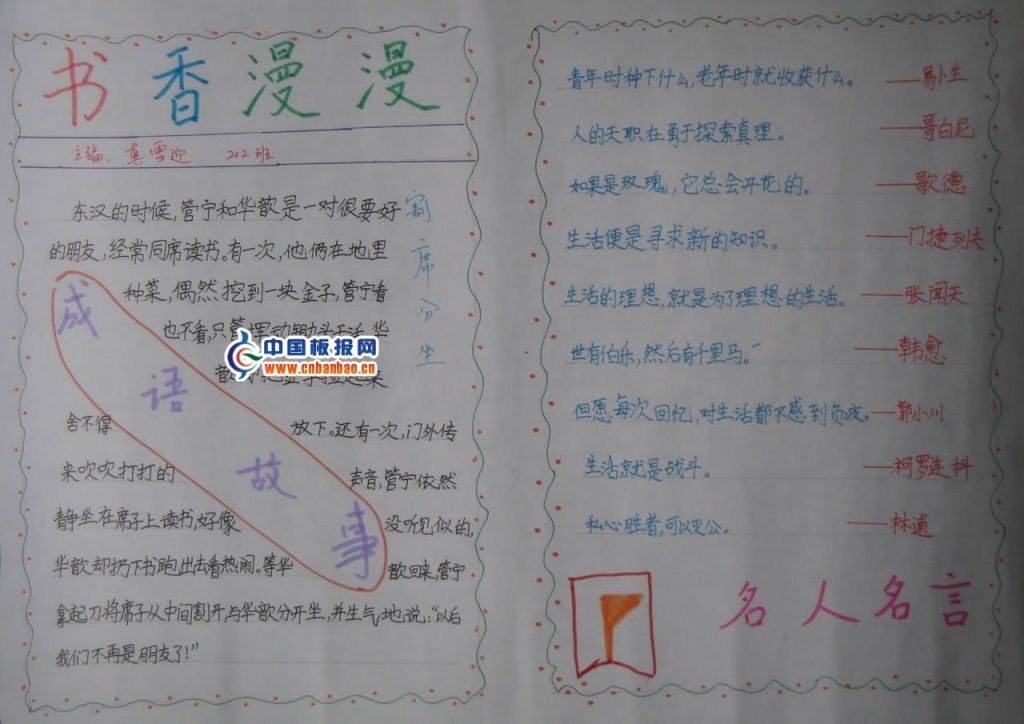 书香漫漫
主编: 龚雪迎 202班
割席分坐
成语故事
东汉的时候,管宁和华歆是一对很要好
的朋友,经常同席读书。有一次,他俩在地里
种菜,偶然挖到一块金子,管宁看
也不看,只管挥动锄头干活,华
中国板报网
www.cnbanbao.cn
舍不得 放下。还有一次,门外传
来吹吹打打的 声音,管宁依然
静坐在席子上读书,好像 没听见似的,
华歆却扔下书跑出去看热闹。等华 歆回来,管宁
拿起刀将席子从中间割开与华歆分开坐,并生气地说:“以后
我们不再是朋友了!”
青年时种下什么,老年时就收获什么。——易卜生
人的天职在勇于探索真理。——哥白尼
如果是玫瑰,它总会开花的。——歌德
生活便是寻求新的知识。——门捷列夫
生活的理想,就是为了理想的生活。——张闻天
世有伯乐,然后有千里马。”——韩愈
但愿每次回忆,对生活都不感到负疚。——郭小川
生活就是战斗。——柯罗连科
私心胜者,可以灭公。——林逋
名人名言